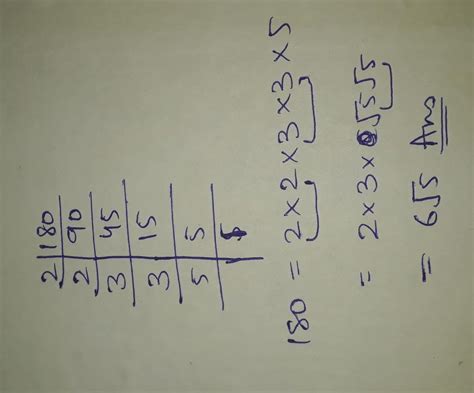 2 | 180
2 | 90
3 | 45
3 | 15
5 | 5
180 = 2 × 2 × 3 × 3 × 5
= 2 × 3 × √5 √5
= 6√5 Ans